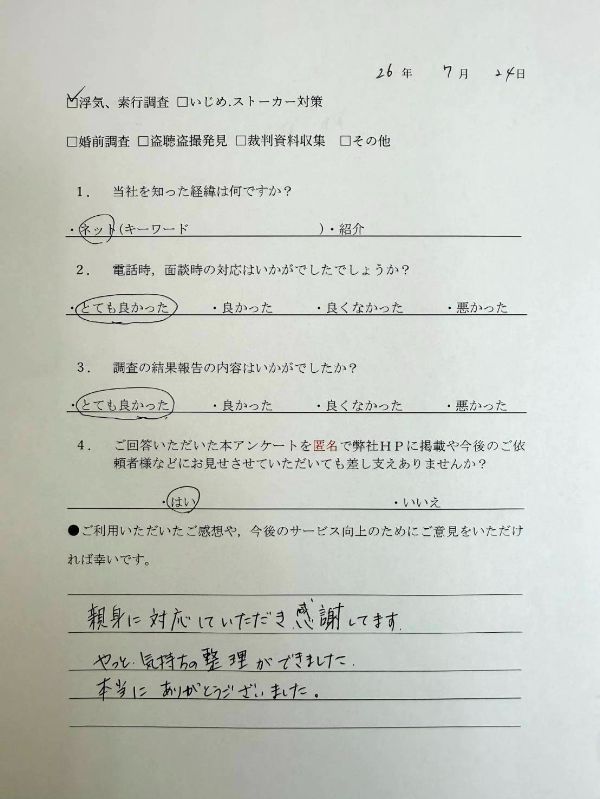 26年 7月 24日
☑浮気、素行調査 □いじめ.ストーカー対策
□婚前調査 □盗聴盗撮発見 □裁判資料収集 □その他
1. 当社を知った経緯は何ですか？
・ネット(キーワード )・紹介
2. 電話時，面談時の対応はいかがでしたでしょうか？
・とても良かった ・良かった ・良くなかった ・悪かった
3. 調査の結果報告の内容はいかがでしたか？
・とても良かった ・良かった ・良くなかった ・悪かった
4. ご回答いただいた本アンケートを匿名で弊社ＨＰに掲載や今後のご依
頼者様などにお見せさせていただいても差し支えありませんか？
・はい ・いいえ
●ご利用いただいたご感想や，今後のサービス向上のためにご意見をいただけ
れば幸いです。
親身に対応していただき感謝してます.
やっと気持ちの整理ができました.
本当にありがとうございました。